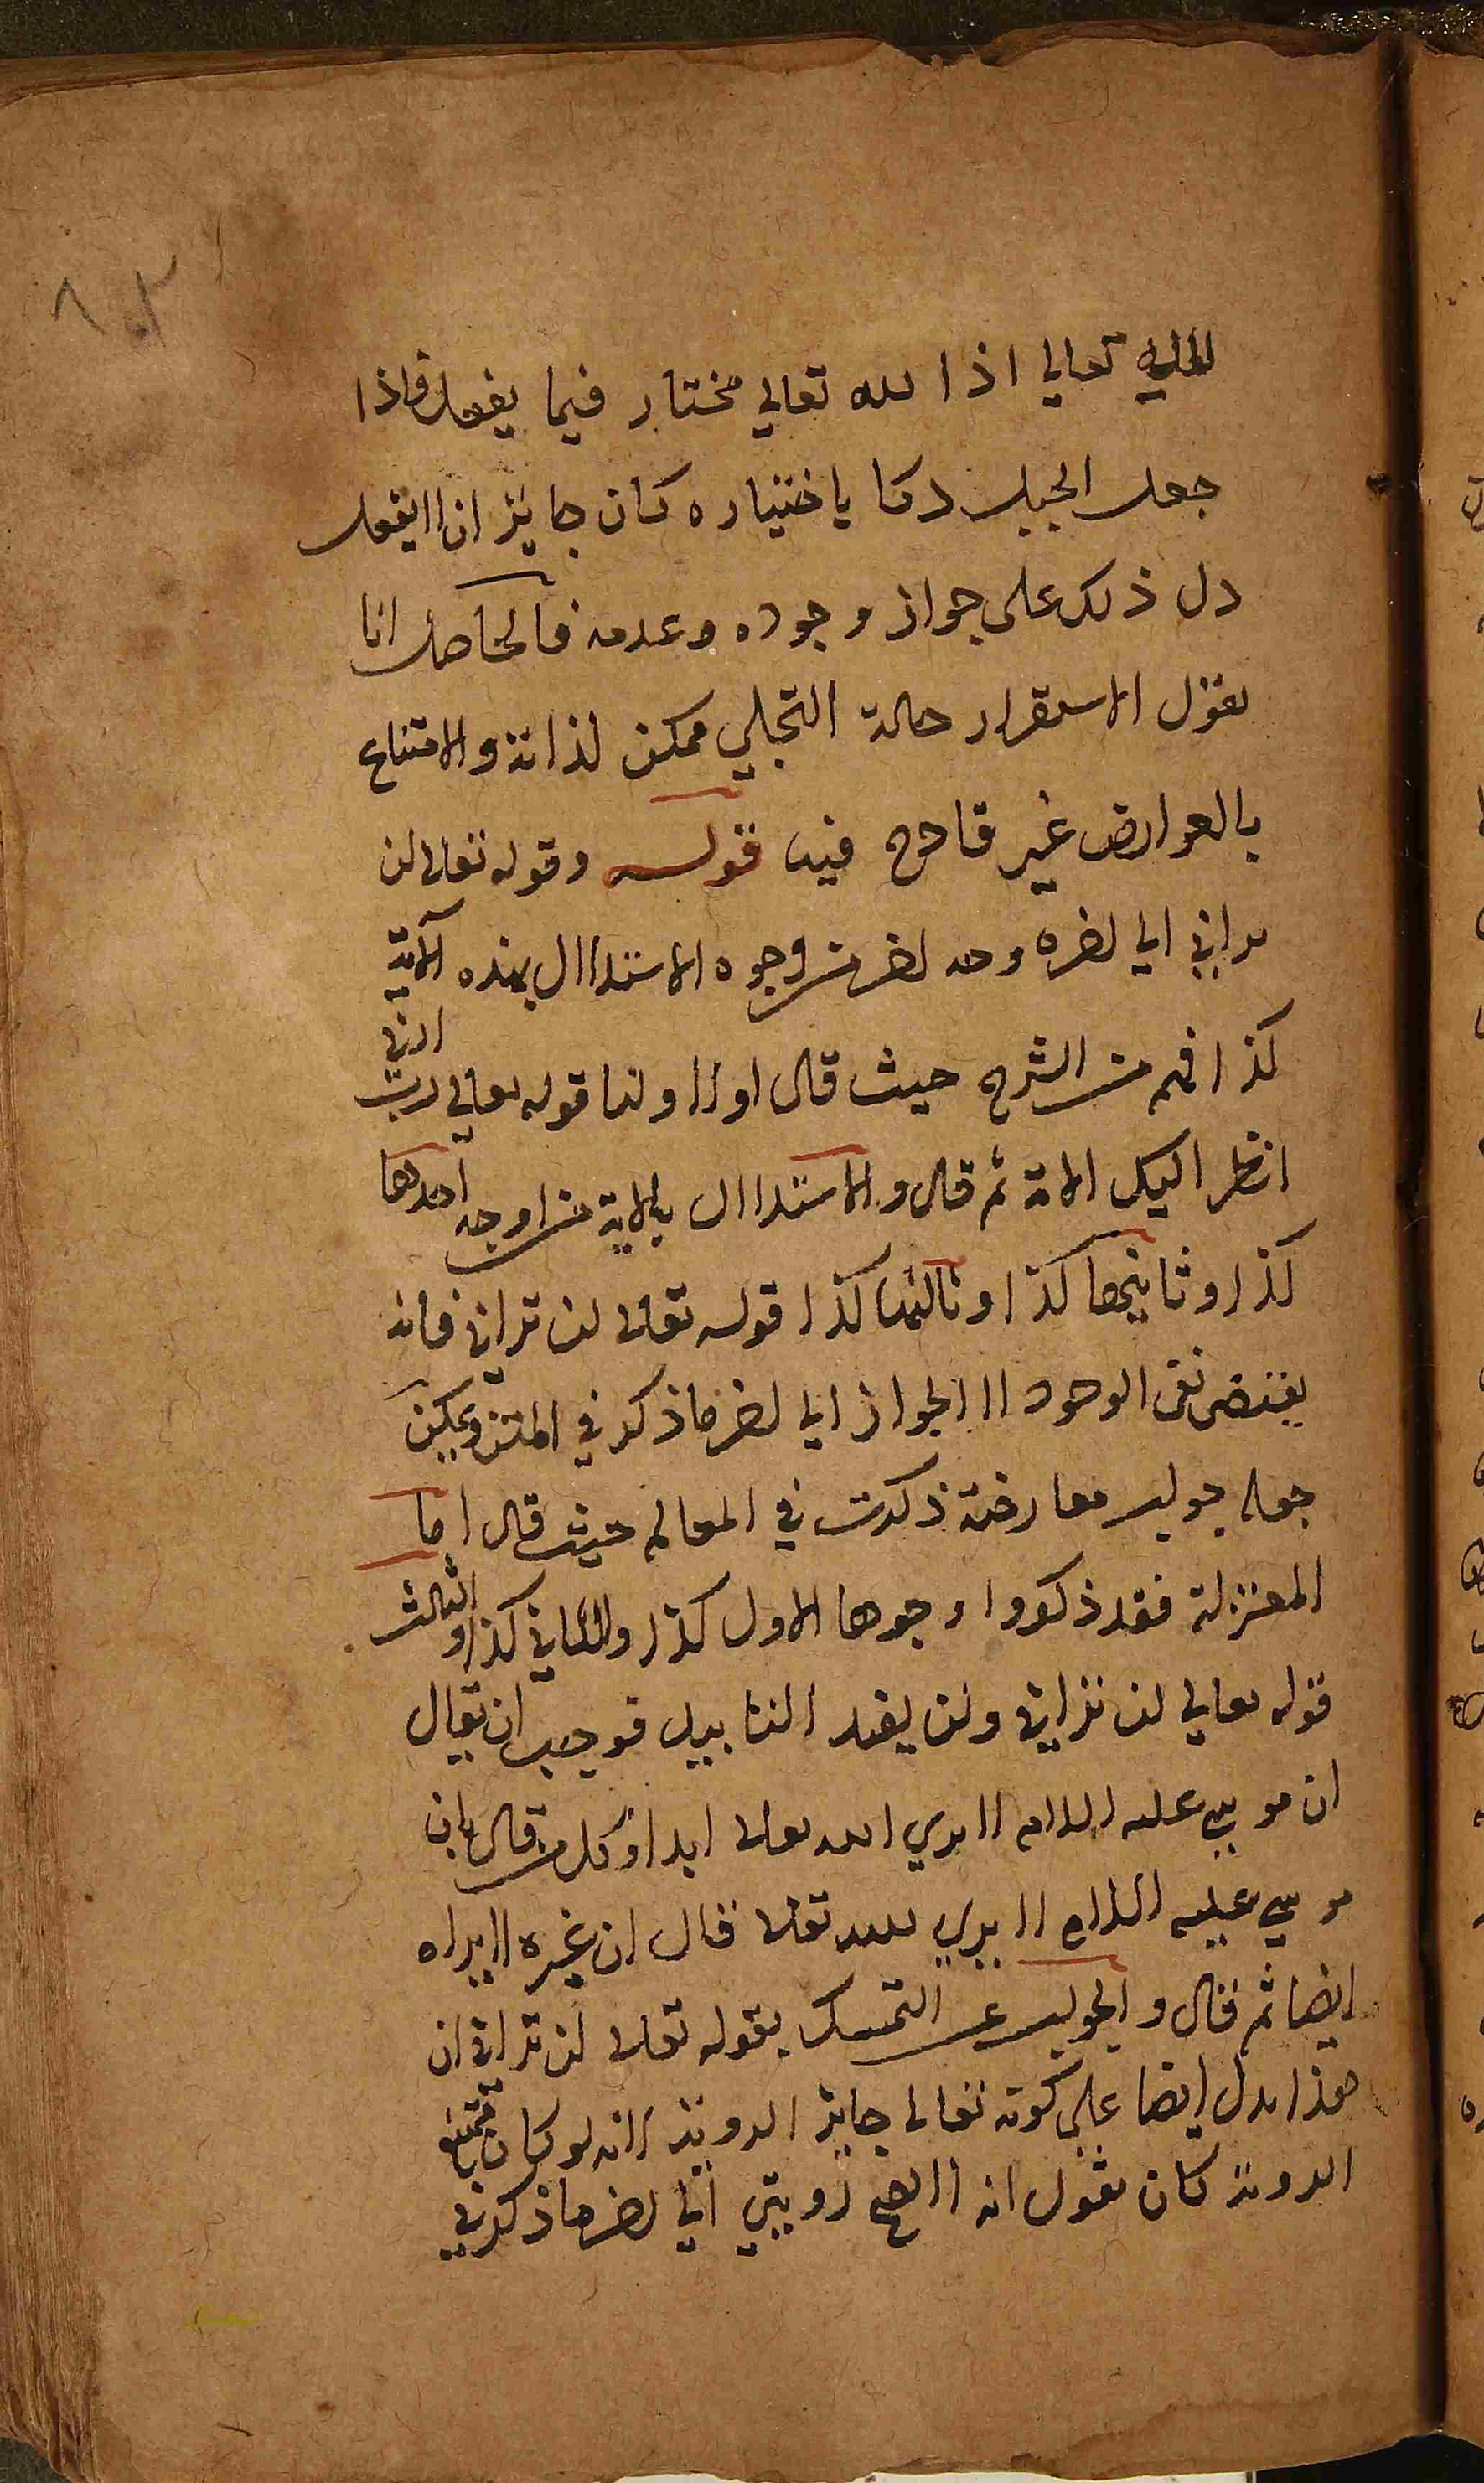 ٨٠٢
الله تعالى اذا لله تعالي مختار فيما يفعل فاذا
جعل الجبل دكا باختياره كان جايز ان لا يفعل
دل ذلك على جواز وجوده وعدمه فالحاصل انا
نقول الاستقرار حالة التجلي ممكن لذاته والامتناع
بالعوارض غير قادح فيه قوله وقوله تعالى لن
تراني الى اخره وجه اخر من وجوه الاستدلال بهذه الآية
كذا فهم من الشرح حيث قال اولا ولنا قوله تعالي رب ارني
انظر اليك الاية ثم قال والاستدلال بالاية من اوجه احدها
كذا وثانيها كذا وثالثها كذا قوله تعالى لن تراني فانه
يقتضي نفي الوجود لا الجواز الى اخر ما ذكر في المتن ويمكن
جعله جواب معارضة ذكرت في المعالم حيث قال اما
المعتزلة فقد ذكروا وجوها الاول كذا والثاني كذا والثالث
قوله تعالي لن تراني ولن يفيد التابيد فوجب ان يقال
ان موسى عليه السلام لا يري الله تعالى ابدا وكل من قال بان
موسى عليه السلام لا يري الله تعالى قال ان غيره لا يراه
ايضا ثم قال والجواب عن التمسك بقوله تعالى لن تراني ان
هذا يدل ايضا على كونه تعالى جايز الروية لانه لو كان ممتنع
الروية كان يقول انه لا يصح رويتي الى اخر ما ذكر في